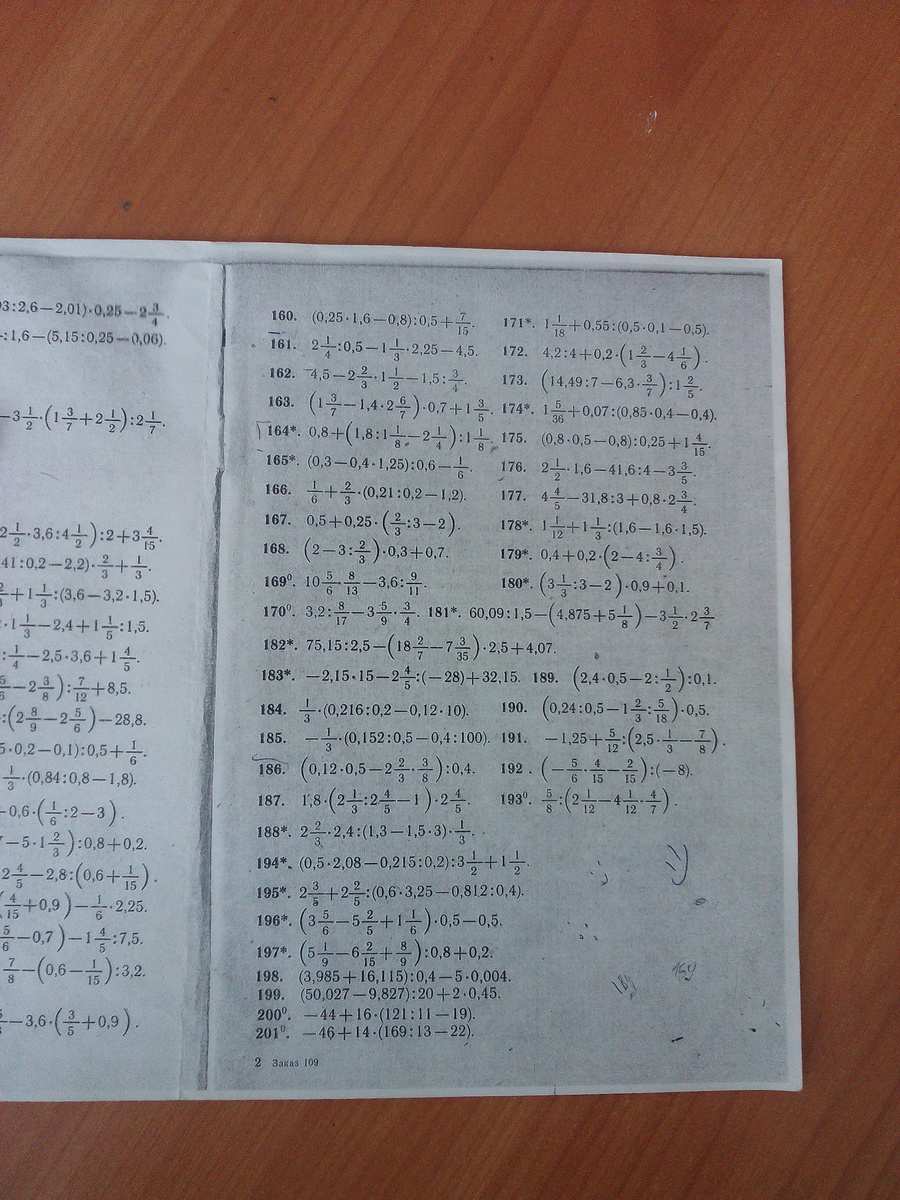 3:2,6−2,01)·0,25−2 3/4.
:1,6−(5,15:0,25−0,06).
−3 1/2·(1 3/7+2 1/2):2 1/7.
2 1/2·3,6:4 1/2):2+3 4/15.
41:0,2−2,2)·2/3+1/3.
+1 1/3:(3,6−3,2·1,5).
·1 1/3−2,4+1 1/5:1,5.
:1/4−2,5·3,6+1 4/5.
−2 3/8):7/12+8,5.
:(2 8/9−2 5/6)−28,8.
5·0,2−0,1):0,5+1/6.
1/3·(0,84:0,8−1,8).
0,6·(1/6:2−3).
−5·1 2/3):0,8+0,2.
2 4/5−2,8:(0,6+1/15).
4/15+0,9)−1/6·2,25.
5/6−0,7)−1 4/5:7,5.
7/8−(0,6−1/15):3,2.
−3,6·(3/5+0,9).
160. (0,25·1,6−0,8):0,5+7/15.
161. 2 1/4:0,5−1 1/3·2,25−4,5.
162. 4,5−2 2/3·1 1/2−1,5:3/4.
163. (1 3/7−1,4·2 6/7)·0,7+1 3/5.
164*. 0,8+(1,8:1 1/8−2 1/4):1 1/8.
165*. (0,3−0,4·1,25):0,6−1/6.
166. 1/6+2/3·(0,21:0,2−1,2).
167. 0,5+0,25·(2/3:3−2).
168. (2−3:2/3)·0,3+0,7.
169⁰. 10 5/6·8/13−3,6:9/11.
170⁰. 3,2:8/17−3 5/9·3/4.
171*. 1 1/18+0,55:(0,5·0,1−0,5).
172. 4,2:4+0,2·(1 2/3−4 1/6).
173. (14,49:7−6,3·3/7):1 2/5.
174*. 1 5/36+0,07:(0,85·0,4−0,4).
175. (0,8·0,5−0,8):0,25+1 4/15.
176. 2 1/2·1,6−41,6:4−3 3/5.
177. 4 4/5−31,8:3+0,8·2 3/4.
178*. 1 1/12+1 1/3:(1,6−1,6·1,5).
179*. 0,4+0,2·(2−4:3/4).
180*. (3 1/3:3−2)·0,9+0,1.
181*. 60,09:1,5−(4,875+5 1/8)−3 1/2·2 3/7
182*. 75,15:2,5−(18 2/7−7 3/35)·2,5+4,07.
183*. −2,15·15−2 4/5:(−28)+32,15.
184. 1/3·(0,216:0,2−0,12·10).
185. −1/3·(0,152:0,5−0,4:100).
186. (0,12·0,5−2 2/3·3/8):0,4.
187. 1,8·(2 1/3:2 4/5−1)·2 4/5.
188*. 2 2/3·2,4:(1,3−1,5·3)·1/3.
189. (2,4·0,5−2:1/2):0,1.
190. (0,24:0,5−1 2/3:5/18)·0,5.
191. −1,25+5/12:(2,5·1/3−7/8).
192. (−5/6·4/15−2/15):(−8).
193⁰. 5/8:(2 1/12−4 1/12·4/7).
194*. (0,5·2,08−0,215:0,2):3 1/2+1 1/2.
195*. 2 3/5+2 2/5:(0,6·3,25−0,812:0,4).
196*. (3 5/6−5 2/5+1 1/6)·0,5−0,5.
197*. (5 1/9−6 2/15+8/9):0,8+0,2.
198. (3,985+16,115):0,4−5·0,004.
199. (50,027−9,827):20+2·0,45.
200⁰. −44+16·(121:11−19).
201⁰. −46+14·(169:13−22).
2 Заказ 109